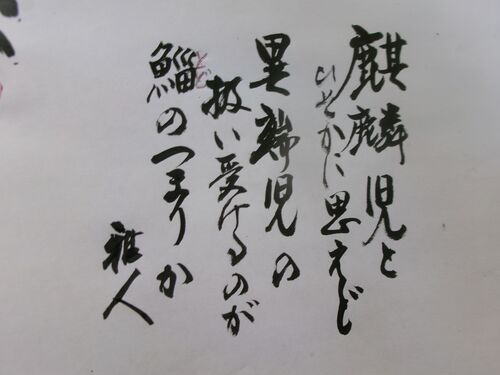 麒麟児と
ひそかに思えど
異端児の
扱い受けるのが
鯔のつまりか
とど
雅人